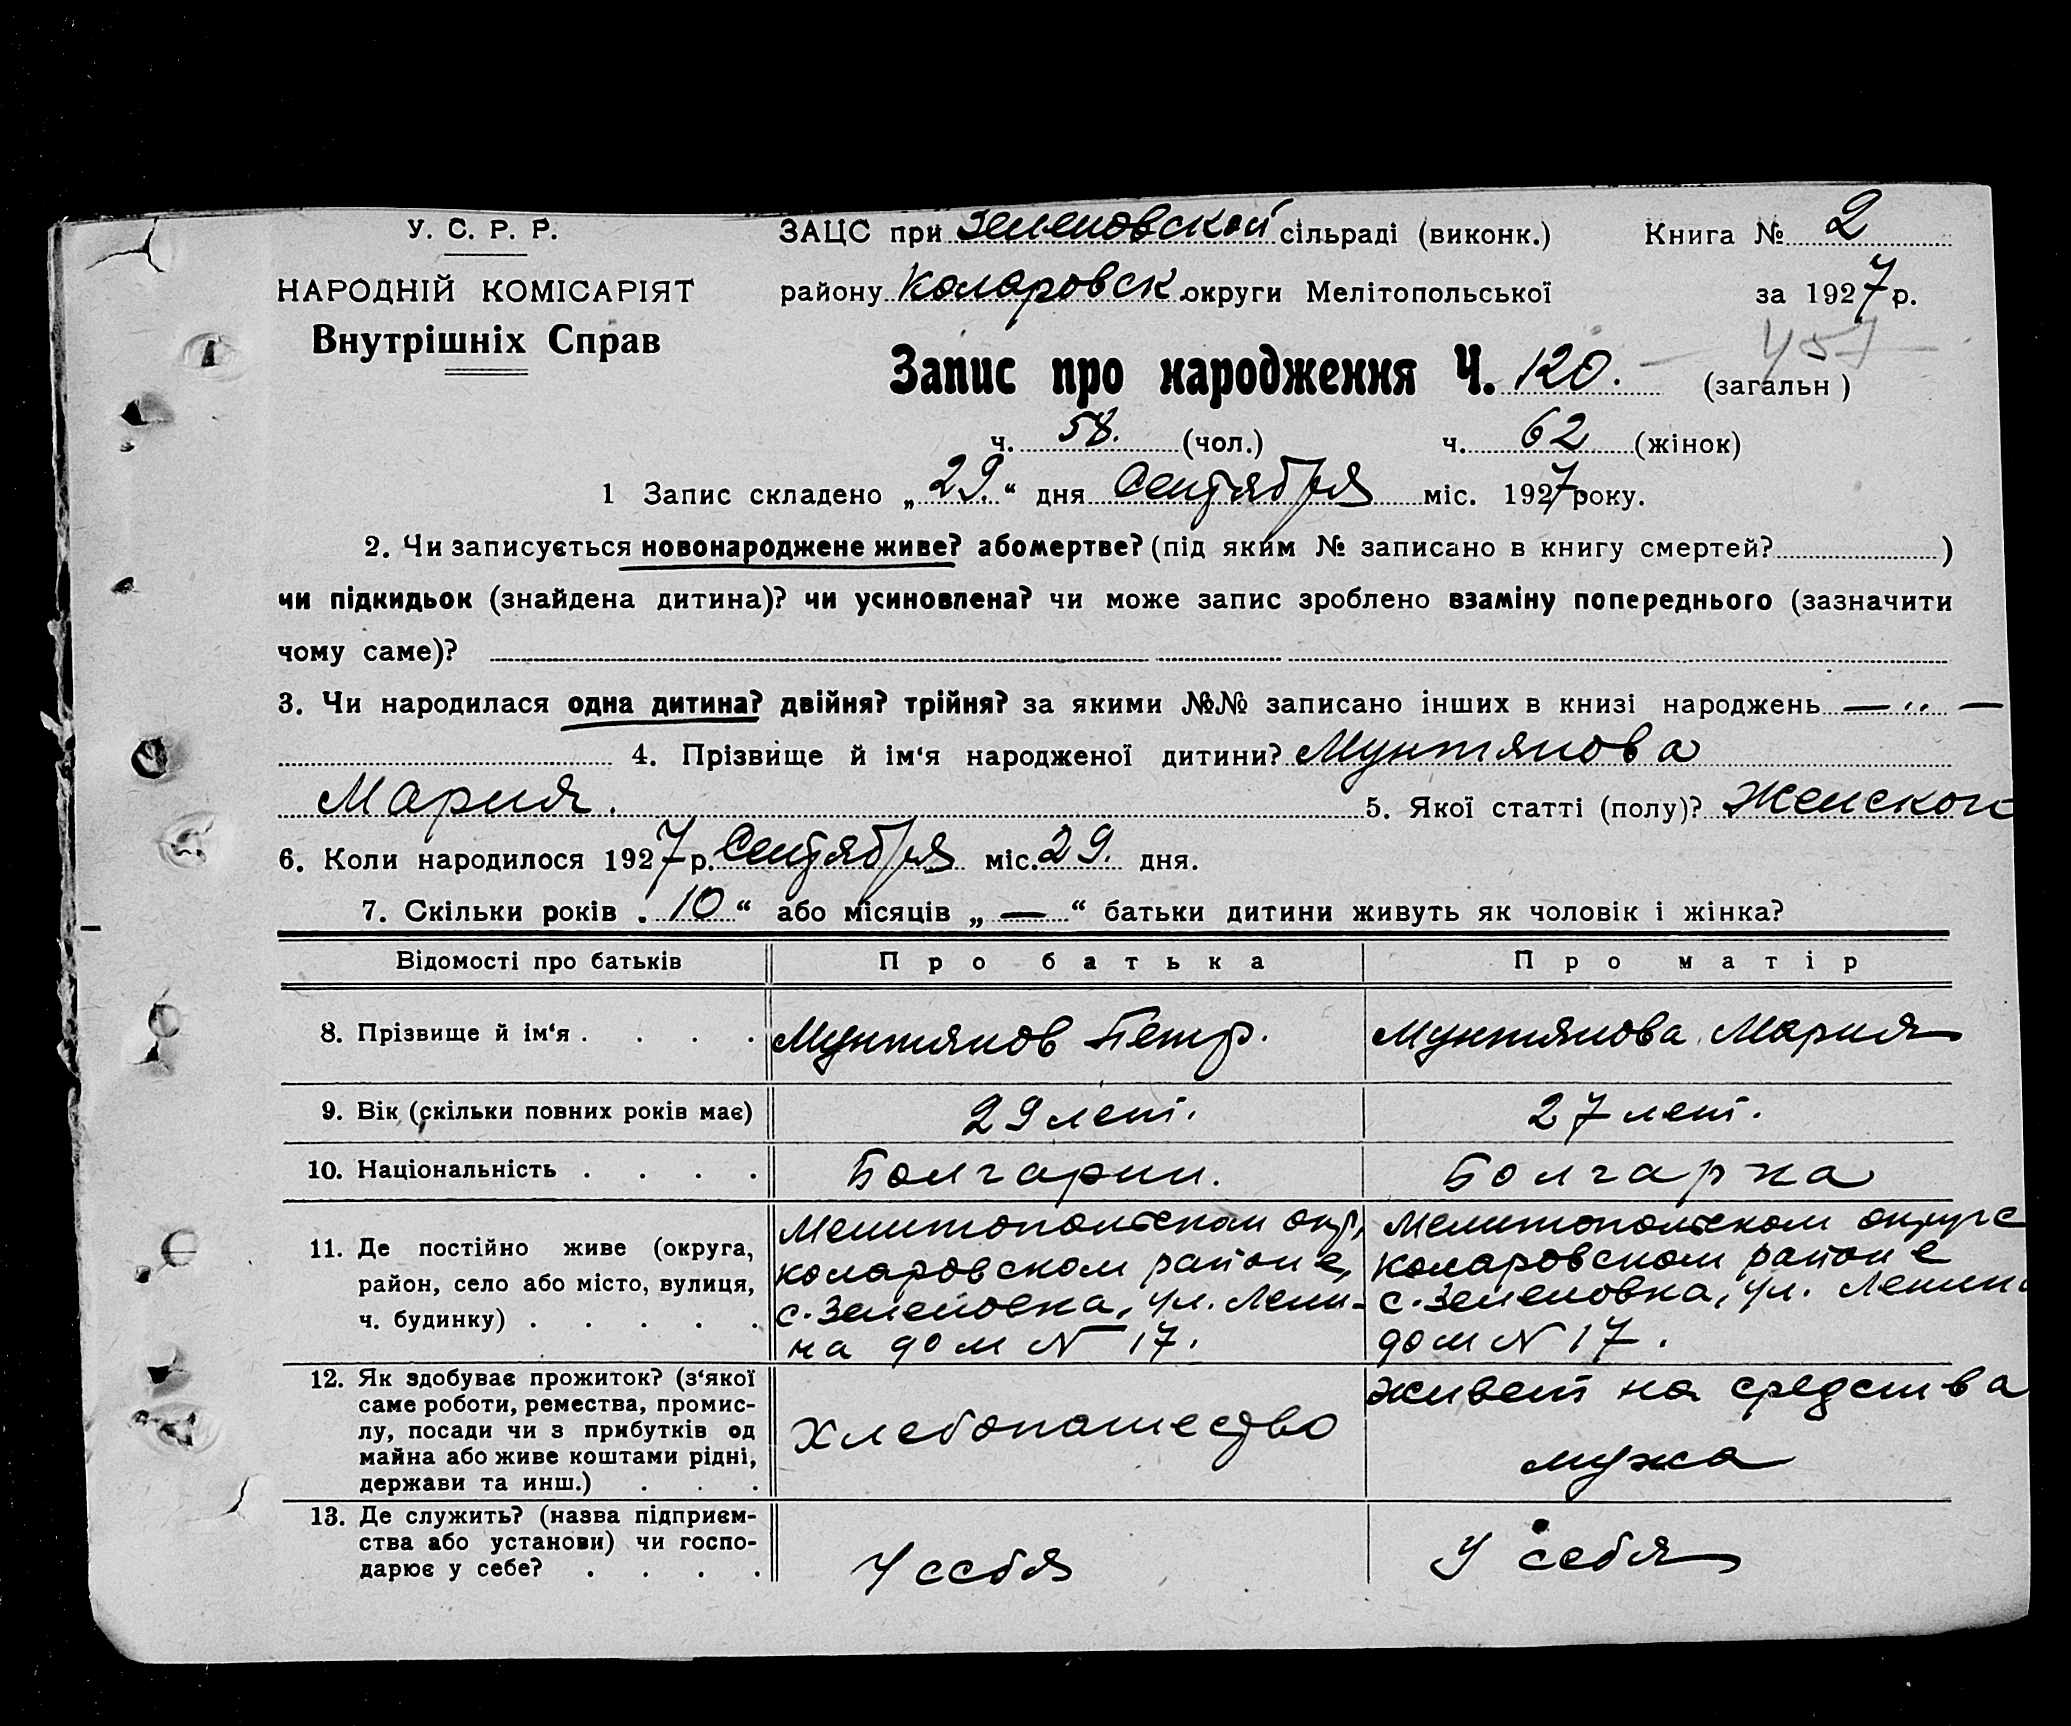 У. С. Р. Р.
НАРОДНІЙ КОМІСАРІЯТ
Внутрішніх Справ
ЗАЦС при Зеленовской сільраді (виконк.) Книга № 2
району Коларовск округи Мелітопольської за 1927 р.
457
Запис про народження Ч. 120. (загальн )
ч. 58. (чол.) ч. 62 (жінок)
1 Запис складено „ 29. “ дня Сентября міс. 1927 року.
2. Чи записується новонароджене живе? абомертве? (під яким № записано в книгу смертей? )
чи підкидьок (знайдена дитина)? чи усиновлена? чи може запис зроблено взаміну попереднього (зазначити
чому саме)?
3. Чи народилася одна дитина? двійня? трійня? за якими №№ записано інших в книзі народжень — „ —
4. Прізвище й ім‘я народженої дитини? Мунтянова
Мария. 5. Якої статті (полу)? Женской
6. Коли народилося 1927 р. Сентября міс. 29. дня.
7. Скільки років „ 10 “ або місяців „ — “ батьки дитини живуть як чоловік і жінка?
Відомості про батьків Про батька Про матір
8. Прізвище й ім‘я . . . . Мунтянов Петр. Мунтянова Мария
9. Вік (скільки повних років має) 29 лет. 27 лет.
10. Національність . . . . Болгарин. Болгарка
11. Де постійно живе (округа,
район, село або місто, вулиця,
ч. будинку) . . . . .
Мелитопольском окр,
коларовском районе,
с. Зеленовка, ул. Лени-
на дом N 17.
Мелитопольском округе
коларовском районе
с. Зеленовка, ул. Ленин
дом N 17.
12. Як здобуває прожиток? (з‘якої
саме роботи, ремества, промис-
лу, посади чи з прибутків од
майна або живе коштами рідні,
держави та инш.) . . .
Хлебопашество
живет на средства
мужа
13. Де служить? (назва підприєм-
ства або установи) чи госпо-
дарює у себе? . . . .
У себя
У себя